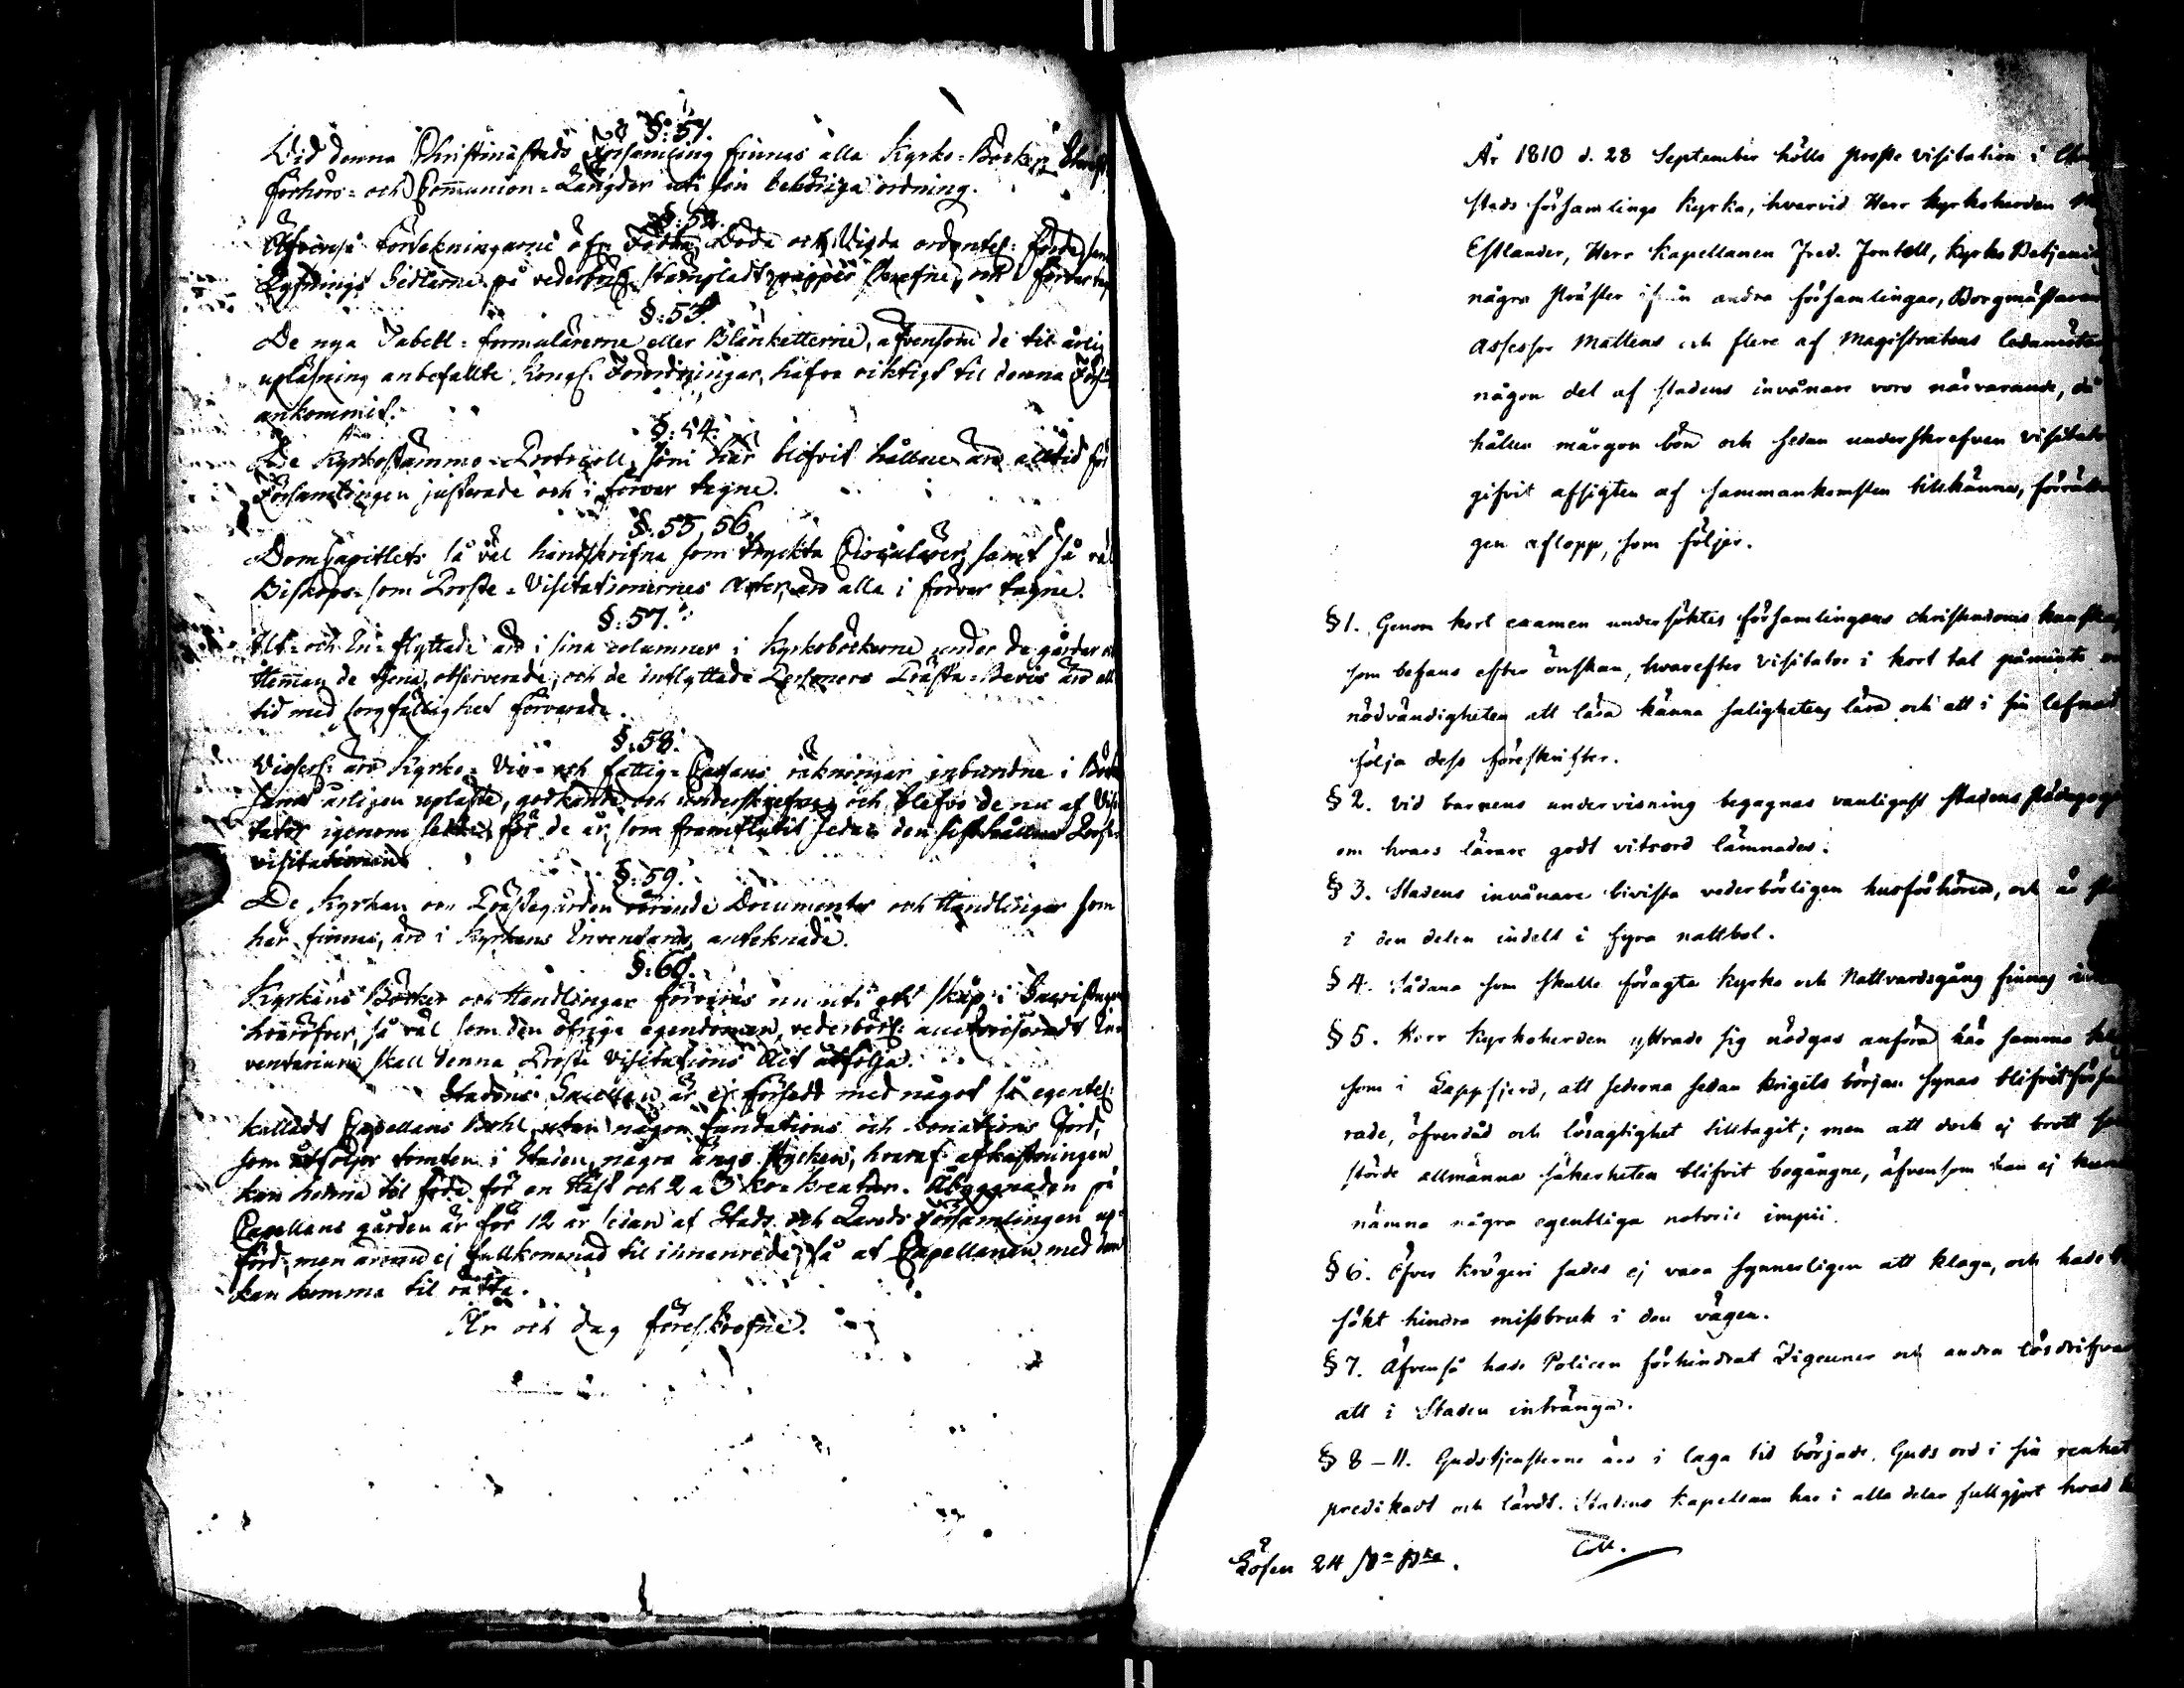 §: 51.
Vid denna Christinæstads Församling finnas alla Kyrko-Böcker,
förhörs- och Communion-Längder uti sin behöriga ordning.
§: 52.
Äfvenså Förtekningarne öfr Födda, Döda och Vigda ordentel:
Lysnings Sedlarne på vederbörl: stämpladt papper skrefne, och i förvar
§: 53.
De nya Tabell-formulärerne eller Blanketterne, äfvensom de til årlig
upläsning anbefallte Kongl. Förordningar, hafva riktigt til denna
ankommit.
§: 54.
De Kyrkostämmo-Protocoll, som här blifvit hållne äro alltid för
Församlingen justerade och i förvar tagne.
§: 55, 56.
DomCapitlets så väl handskrifna som tryckta Circulärer, samt så väl
Biskops- som Proste-Visitationernes Acter, äro alla i förvar tagne.
§: 57.
Ut- och In-flyttade äro i sina columner i Kyrkoböckerne under de gårder
Hemman de tjena, observerade, och de inflyttade Personers Prästa-Bevis äro all-
tid med sorgfällighet förvarade.
§: 58.
äro Kyrko- och fattig-Cassans räkningar inbundne i
årligen uplästa, godkände och underskrefne och blefvo de nu af Visi-
tator igenom för de år, som framflutit sedan den sisthållna
visitationen.
§: 59.
De Kyrkan och Prästegården rörande Documenter och Handlingar som
här finnas, äro i Kyrkans Inventario antecknade.
§: 60.
Kyrkans Böcker och Handlingar förvaras nu uti ett skåp i
hvaröfver, så väl som den öfriga egendomen, vederbörl: In-
ventarium skall denna Proste Visitations Act åtfölja.
Stadens Capellan är ej försedt med något så egentel:
kalladt Capellans Bohl, utan någon fundations och donations Jord,
som åtföljer tomten i Staden, några ängs stycken, hvaraf afkastningen
kan lemna til föda för en Häst och 2 a 3 ko-kreatur. Åbyggnaden på
Capellans gården är för 12 år sedan af Stads och Lands Församlingen up-
förd, men ännu ej fullkomnad til innanrede, så at Capellanen med den
kan komma til rätta.
År och dag föreskrefne.
År 1810 d. 28 September hölls proste visitation i
stads församlings kyrka, hvarvid Herr kyrkoherden
Estlander, Herr kapellanen Fred. Forsell, kyrko Betjening
några präster ifrån andra församlingar, Borgmästaren
Assessor Mattens och flere af Magistratens ledamöter
någon del af stadens invånare voro närvarande, då
hållen märgon bön och sedan underskrefven visitator
gifvit afsigten af sammankomsten tillkänna,
gen aflopp, som följer.
§ 1. Genom kort examen undersöktes församlingens christendoms kunskap
som befans efter önskan, hvarefter Visitator i kort tal påminte om
nödvändigheten att lära känna salighetens lära och att i sin lefnad
följa dess föreskrifter.
§ 2. Vid barnens undervisning begagnas vanligast stadens Pädagog
om hvars lärare godt vitsord lämnades.
§ 3. Stadens invånare bivista vederbörligen husförhören, och är
i den delen indelt i fyra nattbol.
§ 4. Sådana som skulle föragta kyrko och Nattvardsgång finnas
§ 5. Herr kyrkoherden yttrade sig nödgas anföra här samma
som i Lappfjerd, att sederna sedan krigets början synas blifvit
rade, öfverdåd och lösagtighet tilltagit; men att dock ej brott
störde allmänna säkerheten blifvit begångne, äfvensom han ej kunde
nämna några egentliga notorie impii.
§ 6. Öfver krögeri sades ej vara synnerligen att klaga, och hade
sökt hindra missbruk i den vägen.
§ 7. Äfvenså hade Policen förhindrat Zigeuner och andra lösdrifvare
att i Staden intränga.
§ 8-11. Gudstjensterne äro i laga tid började. Guds ord i sin renhet
predikadt och lärdt. Stadens kapellan har i alla delar fullgjort hvad
Lösen 24